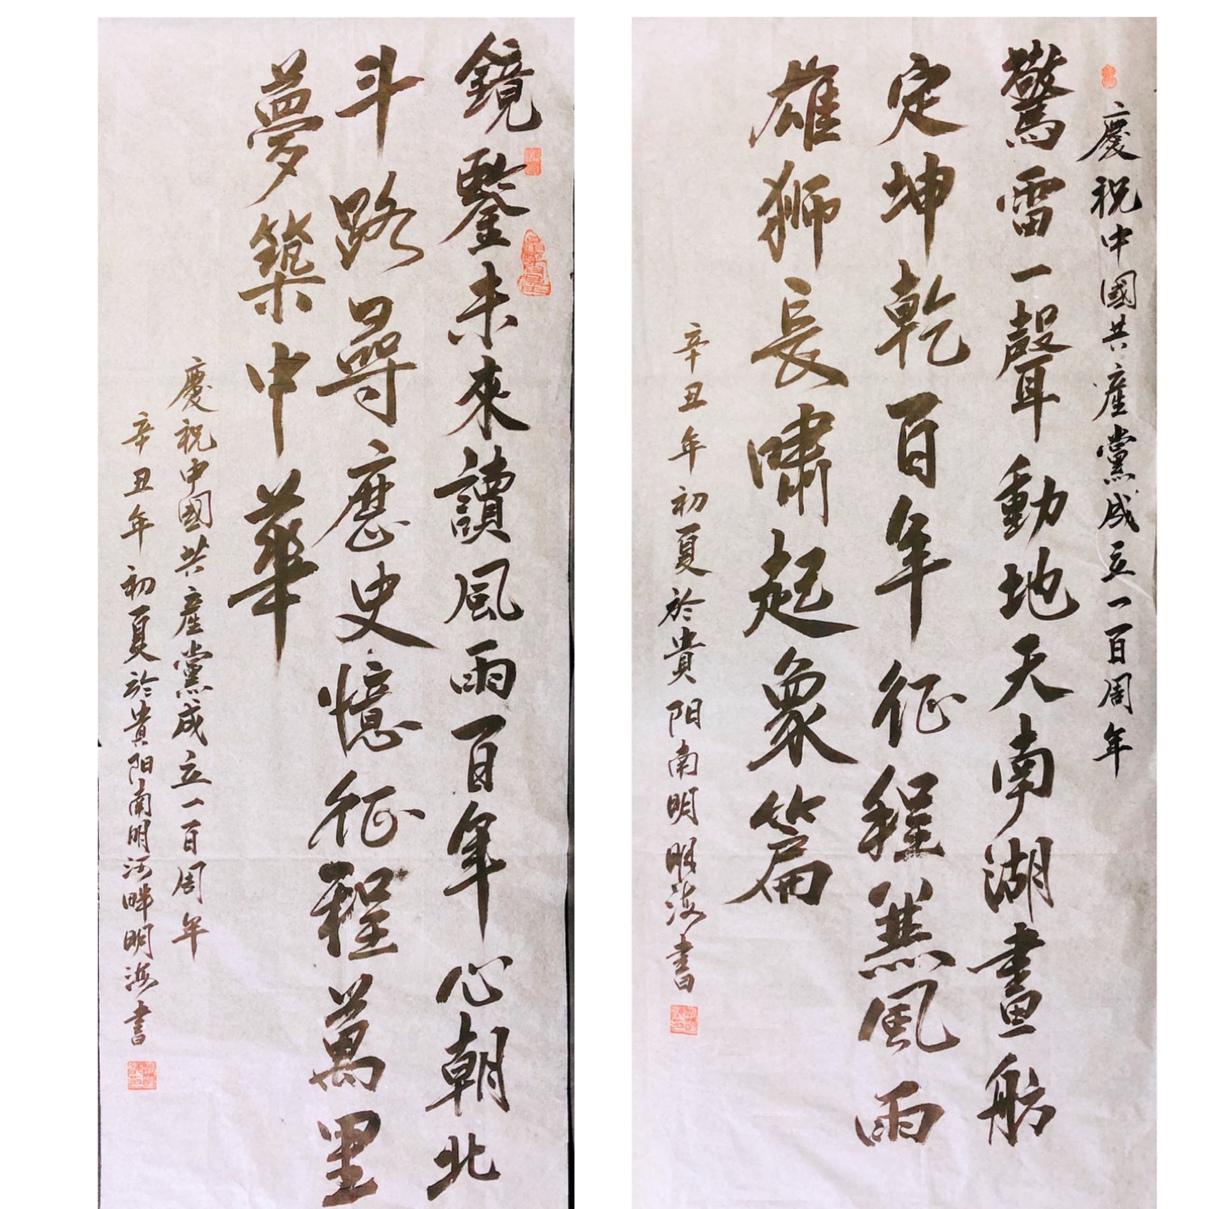 慶祝中國共產黨成立一百周年
驚雷一聲動地天南湖畫舫
定坤乾百年征程兼風雨
雄狮長嘯起象篇
辛丑年初夏於貴阳南明明海書
鏡鑒未來讀風雨百年心朝北
斗路尋歷史憶征程萬里
夢築中華
慶祝中國共產黨成立一百周年
辛丑年初夏於貴阳南明河畔明海書